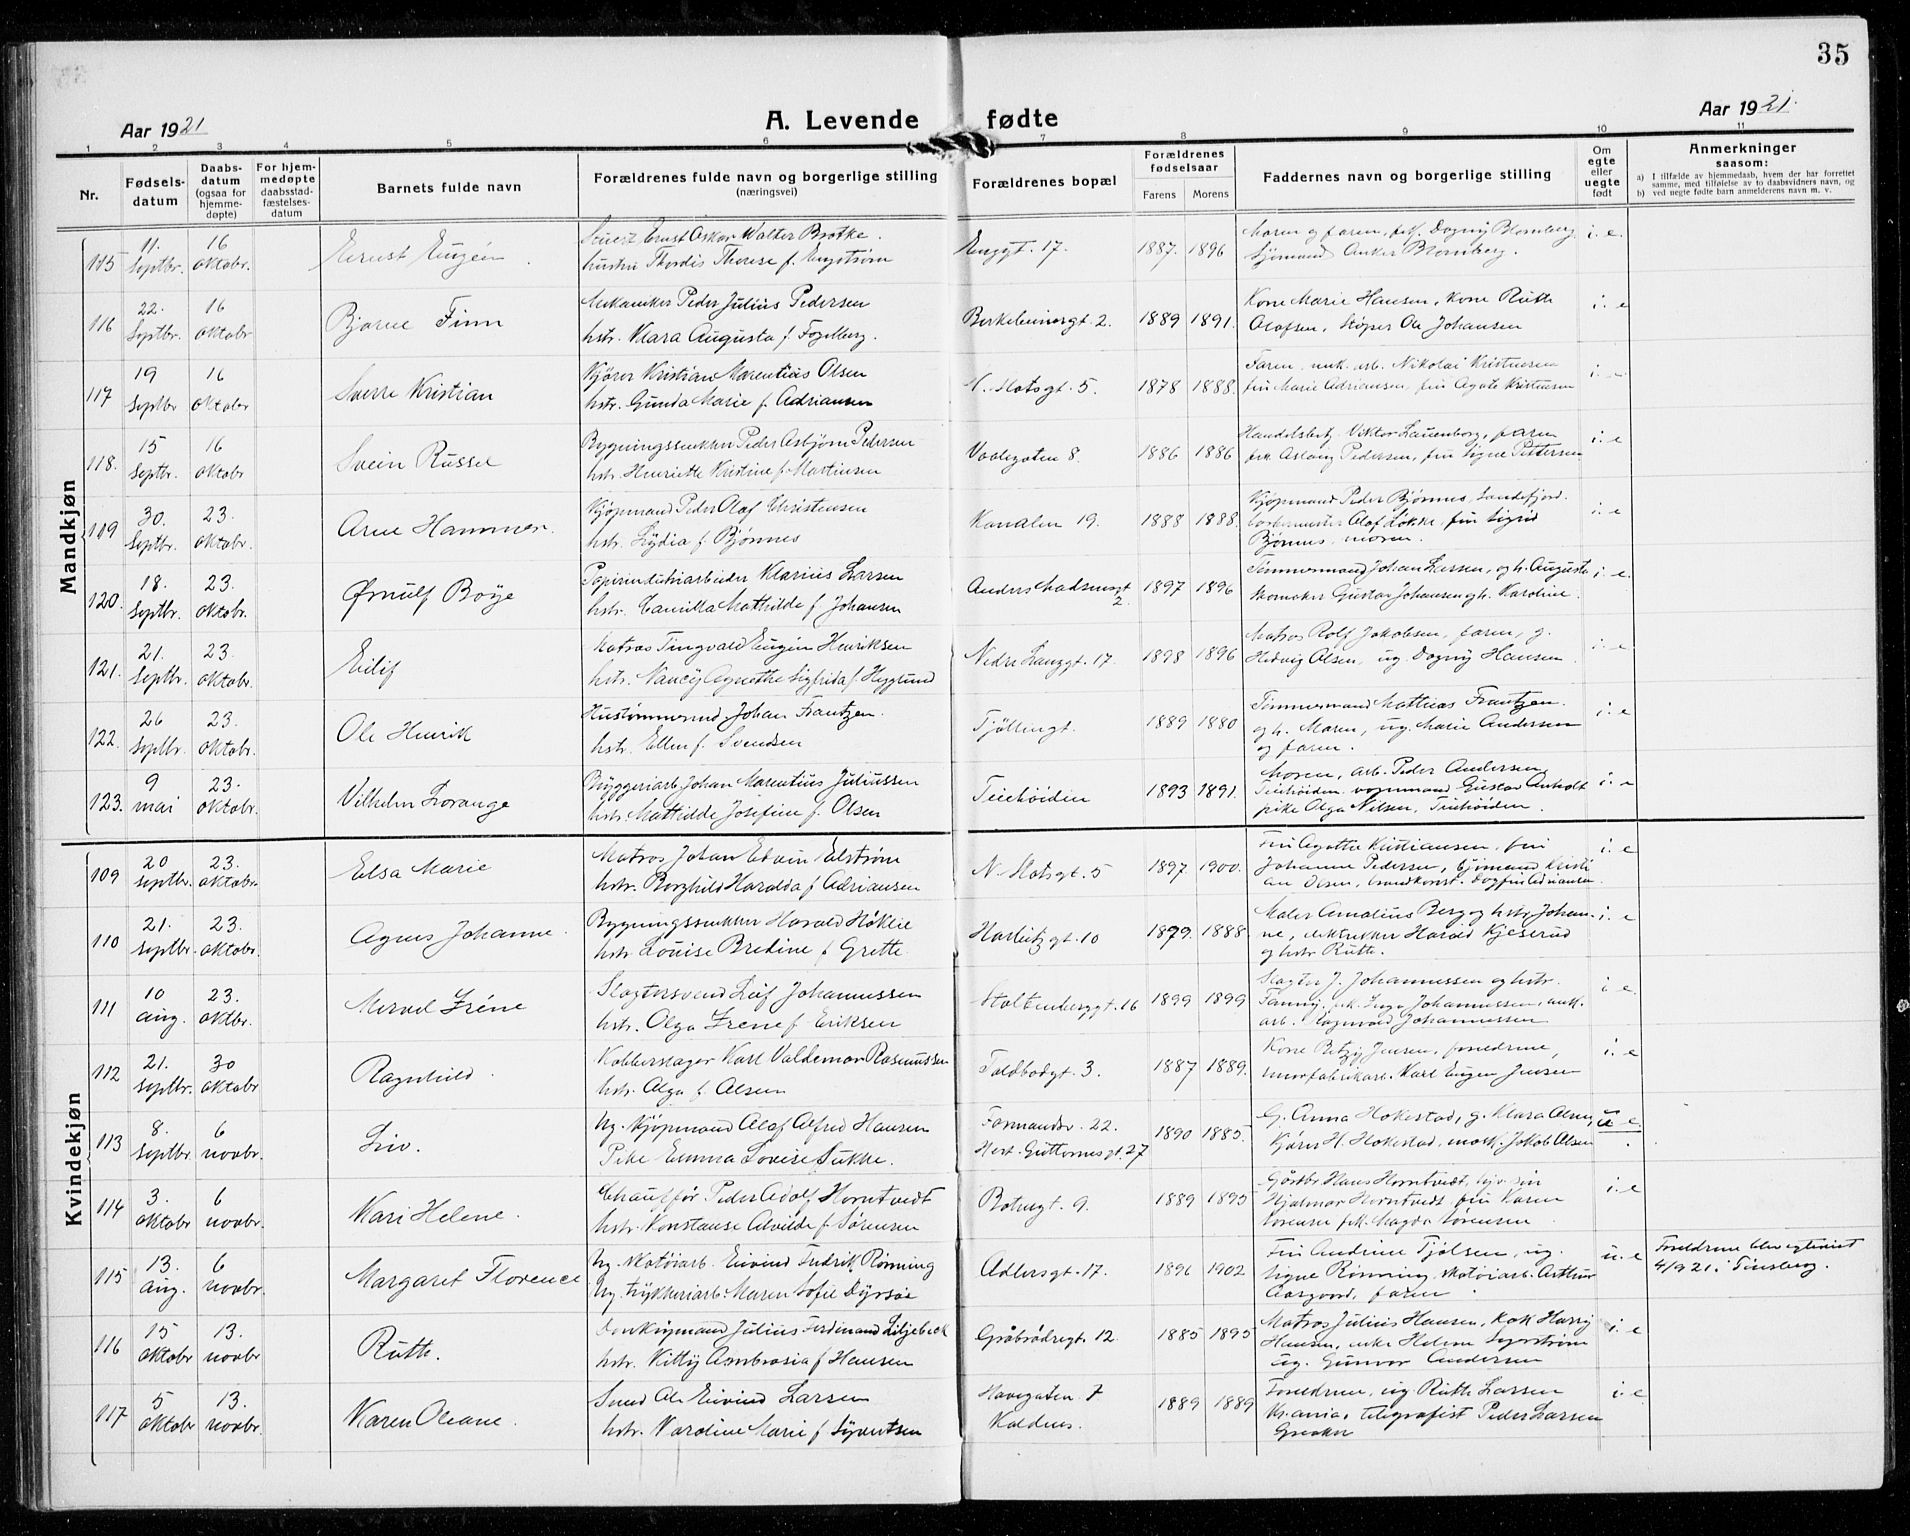 35
Aar 1921
A. Levende fødte
Aar 1921.
1 2 3 4 5 6 7 8 9 10 11
Nr.
Fødsels-
datum
Daabs-
datum
(ogsaa for
hjemme-
døpte)
For hjem-
medøpte
daabsstad-
fæstelses-
datum
Barnets fulde navn
Forældrenes fulde navn og borgerlige stilling
(næringsvei)
Forældrenes bopæl
Forældrenes
fødselsaar
Farens Morens
Faddernes navn og borgerlige stilling
Om
egte
eller
uegte
født
Anmerkninger
saasom:
a) I tilfælde av hjemmedaab, hvem der har forrettet
samme, med tilføielse av to daabsvidners navn, og
b) ved uegte født barn anmelderens navn m. v.
Mandkjøn
115 11. Septbr. 16 oktobr. Ernst Eugén
Ernst Oskar Walter Brotke.
hustru Thordis Therese f. Engstrøm
Enggt. 17. 1887. 1896
Moren og faren, frk. Dagny Blomberg
Sjømand Anker Blomberg. i. e.
116 22. Septbr. 16 oktobr Bjarne Finn
Mekaniker Peder Julius Pedersen
hstr. Klara Augusta f. Fogelberg.
Birkebeinergt. 2. 1889 1891.
Kone Marie Hansen, Kone Ruth
Olafsen, Støper Ole Johansen i. e
117 19 Septbr 16 oktobr Sverre Kristian
Kjører Kristian Marentius Olsen
hstr. Gunda Marie f. Adriansen
N. Slotsgt. 5. 1878 1888.
Faren, mek. arb. Nikolai Kristensen
fru Marie Adriansen, fru Agate Kristensen i. e
118. 15 Septbr. 16 oktobr Svein Russel
Bygningssnekker Peder Asbjørn Pedersen
hstr. Henriette Kristine f. Martinsen
Vaalegaten 8. 1886 1886
Handelsbetj. Viktor Lauenborg, faren
frk. Aslaug Pedersen, fru Signe Pettersen i. e
119 30. Septbr. 23. oktobr. Arne Hammer.
Kjøpmand Peder Olaf Christensen
hstr. Lydia f. Bjønnes
Kanalen 19. 1888 1888.
Kjøpmand Peder Bjønnes, Sandefjord.
Olaf Løkke, fru Sigrid
Bjønnes, moren. i. e
120. 18. Septbr. 23. oktobr. Ørnulf Bøye
Papirindustriarbeider Klarius Larsen
hstr. Camilla Mathilde f. Johansen
Anders Madsensgt 2. 1897 1896
Tømmermand Johan Larsen, og h. Augusta
skomaker Gustav Johansen og h. Karoline. i. e.
121. 21. Septbr. 23. oktobr. Eilif
Matros Tingvald Eugén Henriksen
hstr. Nancy Agnethe Sigfrida f. Hyglund
Nedre Langgt. 17. 1898 1896
Matros Rolf Jakobsen, faren, g.
Hedvig Olsen, ug. Dagny Hansen. i. e
122. 26 Septbr. 23. oktobr. Ole Henrik
Hustømmermd. Johan Frantzen.
hstr. Ellen f. Svendsen
Tjøllingt. 1889 1880
Tømmermand Mathias Frantzen.
og h. Maren, ug. Marie Andersen
og faren. i. e
123. 9 mai 23. oktobr. Vilhelm Lorange
Bryggeriarb. Johan Marentius Juliussen
hstr. Mathilde Josefine f. Olsen
Teiehöiden 1893 1891.
Moren, arb. Peder Andersen
Teiehöiden. vognmand Gustav Anholt
pike Olga Nilsen, Teiehöiden. i. e
Kvindekjøn
109 20 Septbr. 23. oktobr. Elsa Marie
Matros Johan Edvin Eelstrøm
hstr. Borghild Haralda f. Adriansen
N. Slotsgt. 5 1897. 1900.
Fru Agathe Kristiansen, fru
Johanne Pedersen, Sjømand Kristi
an Olsen, Dagfin Adriansen. i. e
110 21. Septbr. 23. oktobr. Agnes Johanne.
Bygningssnekker Harald Høklie
hstr. Louise Bredine f. Grette.
Harbitzgt. 10 1879. 1888.
Maler Amalius Berg og hstr. Johan-
ne, Harald Kjeserud
og hstr. Ruth. i. e
111 10 aug. 23. oktbr. Mervel Iréne
Slagtersvend Leif Johannessen
hstr. Olga Irene f Eriksen
Stoltenberggt. 16 1899 1899
Slagter J. Johannessen og hstr.
Fanny, frk. Inga Johannessen, mek.
arb. Ragnvald Johannessen i. e.
112 21. Septbr. 30 oktobr Ragnhild.
Kobberslager Karl Valdemar Rasmussen
hstr. Olga f. Olsen
Toldbodgt. 3. 1887 1889.
Kone Betzy Jensen, forældrene,
smørfabrikarb. Karl Eugen Jensen i. e
113 8. Septbr. 6 novbr. Liv.
Ug. Kjøpmand Olaf Alfred Hansen
Pike Emma Lovise Sukke.
Farmandsv. 22.
Hert. Guttormsgt. 27 1890 1885.
G. Anna Hokestad, g. Klara Olsen,
Kjører H. Hokestad, mask. Jakob Olsen u. e.
114 3. oktobr 6 novbr. Kari Helene.
Chauffør Peder Adolf Horntvedt
hstr. Konstanse Alvilde f. Sørensen
Botnegt. 9. 1889 1895
Gårdbr. Hans Horntvedt,
Hjalmar Horntvedt, fru Karen
Sørensen frk. Magda Sørensen i. e
115 13. aug. 6 novbr. Margaret Florence
Ug. Skotøiarb. Eivind Fredrik Rønning
Ug. Trykkeriarb. Maren Sofie Dyrsøe
Adlersgt. 17. 1896 1902
Fru Andrine Tjølsen, ug.
Signe Rønning, skotøiarb. Arthur
Aasgaard, faren. u. e
Forældrene blev egteviet
4/9 21 i Tønsberg.
116 15 oktobr 13. novbr Ruth.
Donkeymand Julius Ferdinand Liljebeck
hstr. Kitty Ambrosia f Hansen
Gråbrødregt. 12. 1885 1895
Matros Julius Hansen, Kok Harry
Hansen, enke Helene
ug. Gunvor Andersen i. e
117 5 oktobr 13. novbr. Karen Oleane.
Smed Ole Eivind Larsen
hstr. Karoline Marie f Syvertsen
Havegaten 7
Kaldnes. 1889 1889
Forældrene, ug Ruth Larsen
Kr.ania, telegrafist Peder Larsen
Greaker i. e